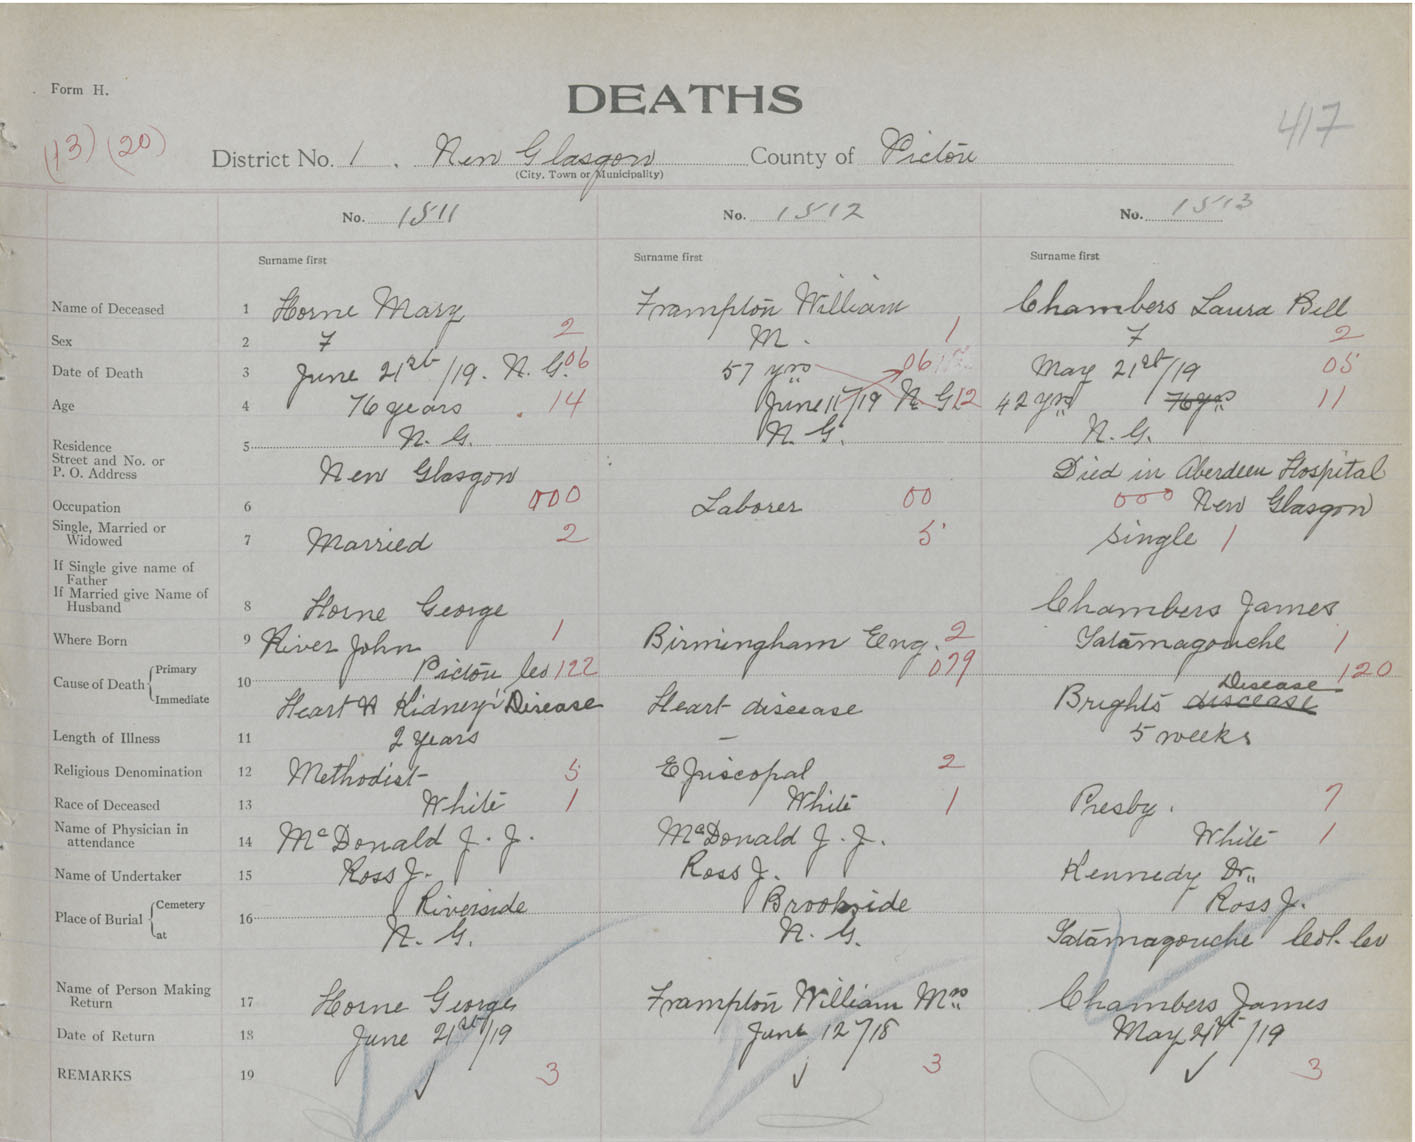 Form H.
DEATHS
417
(13) (20)
District No. 1. New Glasgow County of Pictou
(City, Town or Municipality)
No. 1511 No. 1512 No. 1513
Surname first Surname first Surname first
Name of Deceased 1 Horne Mary Frampton William Chambers Laura Bell
Sex 2 F 2 M. 1 F 2
Date of Death 3 June 21st/19. N. G. 06 57 yrs 06 May 21st/19 05
Age 4 76 years . 14 June 11/19 N. G. 12 42 yrs 76 yrs 11
N. G. N. G. N. G.
Residence 5
Street and No. or
P. O. Address New Glasgow Died in Aberdeen Hospital
Occupation 6 000 Laborer 00 000 New Glasgow
Single, Married or
Widowed 7 Married 2 5 single 1
If Single give name of
Father
If Married give Name of
Husband 8 Horne George Chambers James
Where Born 9 River John 1 Birmingham Eng. 2 Tatamagouche 1
Pictou Co 122 079 120
Cause of Death { Primary Immediate 10 Disease
Heart & Kidney Disease Heart disease Brights disease
Length of Illness 11 2 years – 5 weeks
Religious Denomination 12 Methodist 5 Episcopal 2
Race of Deceased 13 White 1 White 1 Presby. 7
Name of Physician in
attendance 14 McDonald J. J. McDonald J. J. White 1
Name of Undertaker 15 Ross J. Ross J. Kennedy Dr.
Place of Burial { Cemetery at 16 Riverside Brookside Ross J.
N. G. N. G. Tatamagouche Col. Co
Name of Person Making
Return 17 Horne George Frampton William Mrs Chambers James
Date of Return 18 June 21st/19 June 12/18 May 21st/19
REMARKS 19 3 3 3